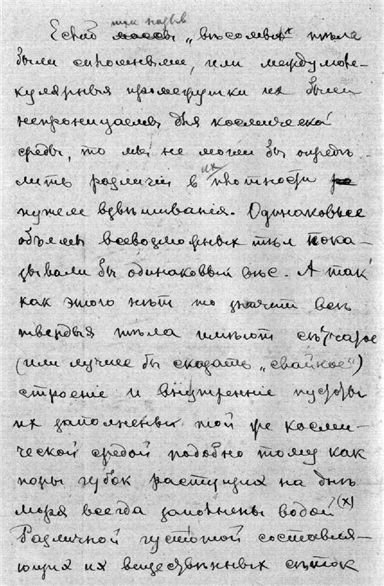 так назыв
Если бы „вѣсомыя" тѣла
были сплошными, или междумоле-
кулярныя промежутки их были
непроницаемы для космической
среды, то мы не могли бы опредѣ-
лить различiй в их плотности
путем взвѣшиванiя. Одинаковые
объемы всевозможных тѣл пока-
зывали бы одинаковый вѣс. А так
как этого нѣт то значит всѣ
твердыя тѣла имѣют сѣтчатое
(или лучше бы сказать „свайное")
строенiе и внутреннiе пустоты
их заполнены той же косми-
ческой средой подобно тому как
поры губок растущих на днѣ
моря всегда заполнены водой (х)
Различной густотой составля-
ющих их вещественных сѣток